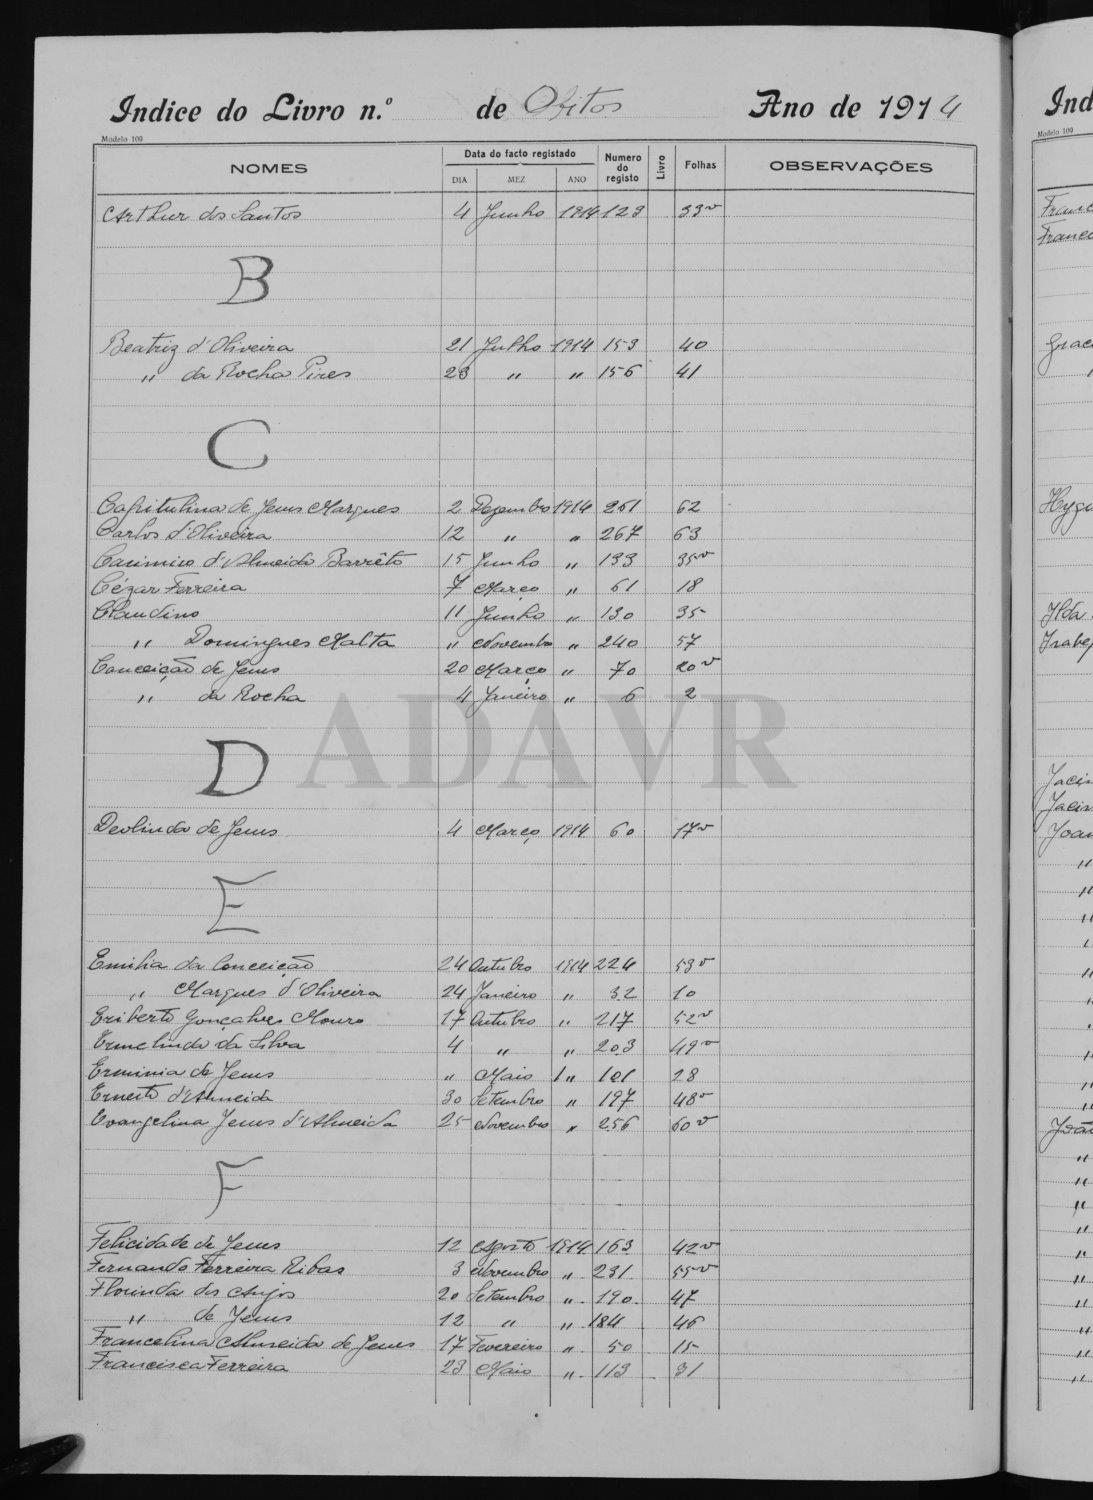 Indice do Livro n.º de Obitos Ano de 1914
Modelo 109
NOMES Data do facto registado Numero do registo Livro Folhas OBSERVAÇÕES
DIA MEZ ANO
Arthur dos Santos 4 Junho 1914 123 33v
B
Beatriz d'Oliveira 21 Julho 1914 153 40
" da Rocha Pires 23 " " 156 41
C
Capitulina de Jesus Marques 2 Dezembro 1914 261 62
Carlos d'Oliveira 12 " " 267 63
Casimiro d'Almeida Barrêto 15 Junho " 133 35v
Cézar Ferreira 7 Março " 61 18
Claudino 11 Junho " 130 35
" Domingues Malta " Novembro " 240 57
Conceição de Jesus 20 Março " 70 20v
" da Rocha 4 Janeiro " 6 2
ADAVR
D
Deolinda de Jesus 4 Março 1914 60 17v
E
Emilia da Conceição 24 Outubro 1914 224 53v
" Marques d'Oliveira 24 Janeiro " 32 10
Eriberto Gonçalves Mouro 17 Outubro " 217 52v
Ermelinda da Silva 4 " " 203 49v
Erminia de Jesus " Maio 1" 101 28
Ernesto d'Almeida 30 Setembro " 197 48v
Evangelina Jesus d'Almeida 25 Novembro " 256 60v
F
Felicidade de Jesus 12 Agosto 1914 163 42v
Fernando Ferreira Ribas 3 Novembro " 231 55v
Florinda dos Anjos 20 Setembro " 190 47
" de Jesus 12 " " 184 46
Francelina Almeida de Jesus 17 Fevereiro " 50 15
Francisca Ferreira 23 Maio " 113 31